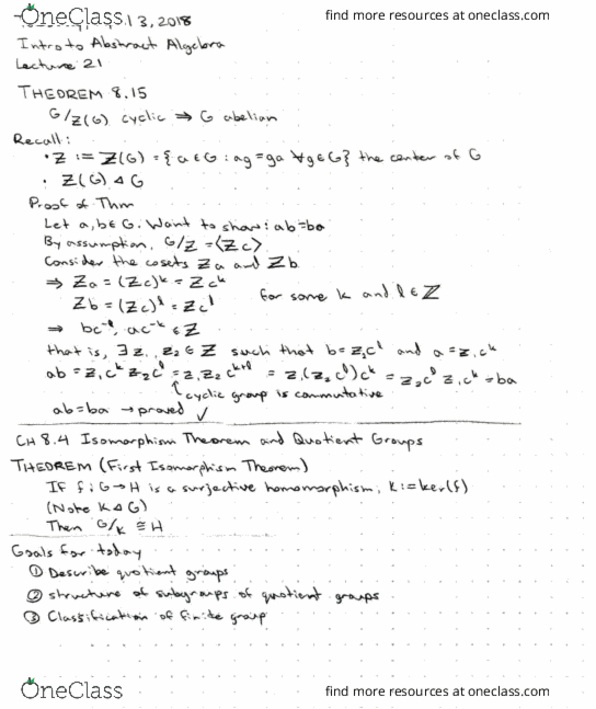 OneClass
find more resources at oneclass.com
13, 2018
Intro to Abstract Algebra
Lecture 21
THEOREM 8.15
G/Z(G) cyclic ⇒ G abelian
Recall:
· Z := Z(G) = {a ∈ G : ag = ga ∀g ∈ G} the center of G
· Z(G) ⊲ G
Proof of Thm
Let a, b ∈ G. Want to show: ab = ba
By assumption, G/Z = ⟨Zc⟩
Consider the cosets Za and Zb
⇒ Za = (Zc)^k = Zc^k
Zb = (Zc)^l = Zc^l for some k and l ∈ ℤ
⇒ bc^-l, ac^-k ∈ Z
that is, ∃ z₁, z₂ ∈ Z such that b = z₂c^l and a = z₁c^k
ab = z₁c^k z₂c^l = z₁z₂c^k+l = z₁(z₂c^l)c^k = z₂c^l z₁c^k = ba
↑ cyclic group is commutative
ab = ba → proved ✓
CH 8.4 Isomorphism Theorem and Quotient Groups
THEOREM (First Isomorphism Theorem)
IF f : G → H is a surjective homomorphism, K := ker(f)
(Note K ⊲ G)
Then G/K ≅ H
Goals for today
① Describe quotient groups
② structure of subgroups of quotient groups
③ Classification of finite group
OneClass
find more resources at oneclass.com